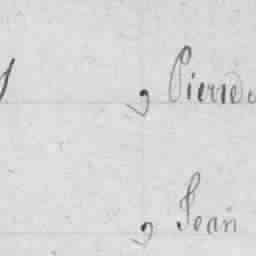 , Pierre
, Jean